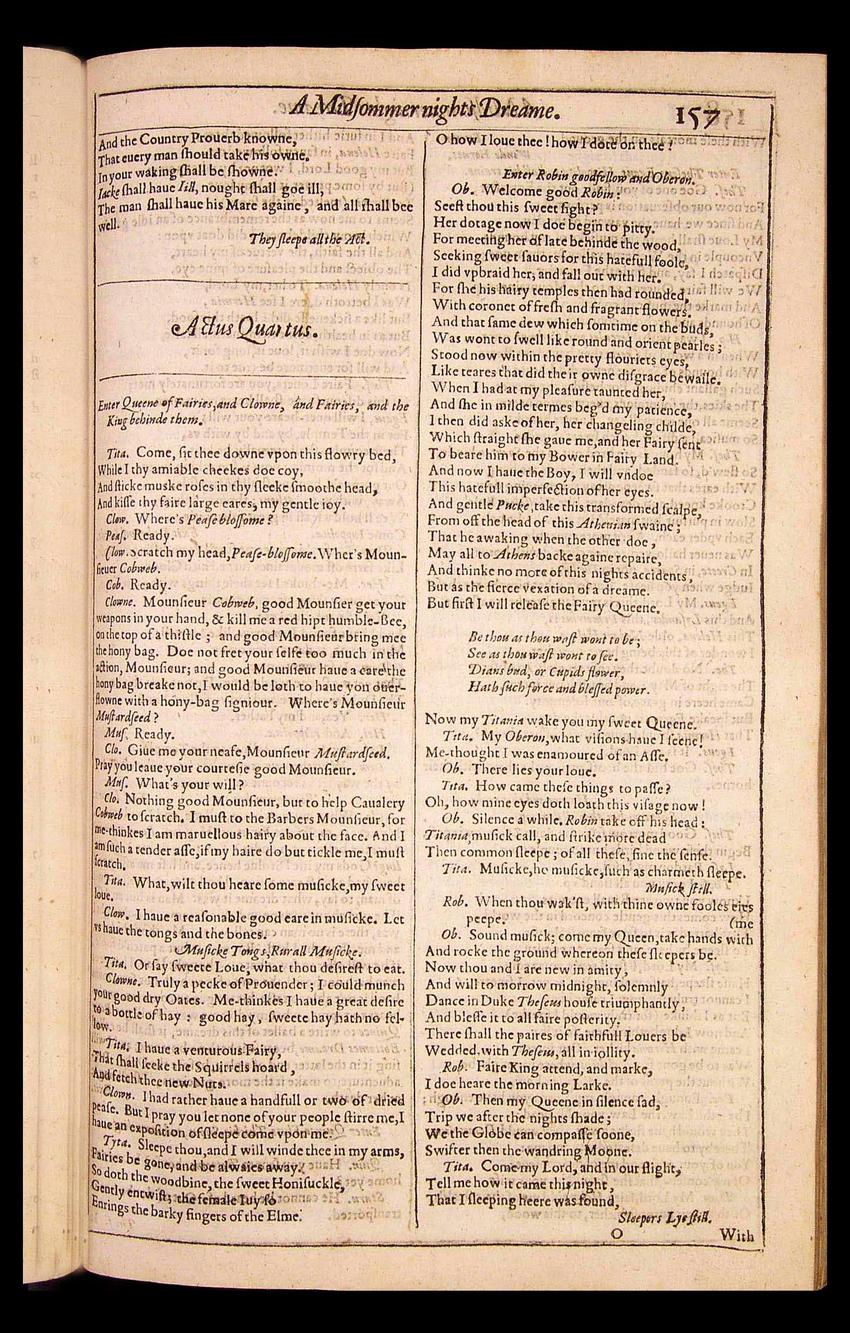 A Midſommer nights Dreame.
157
And the Country Prouerb knowne,
That euery man ſhould take his owne,
In your waking ſhall be ſhowne.
Iacke ſhall haue Iill, nought ſhall goe ill,
The man ſhall haue his Mare againe, and all ſhall bee
well.
They ſleepe all the Act.
Actus Quartus.
Enter Queene of Fairies, and Clowne, and Fairies, and the
King behinde them.
Tita. Come, ſit thee downe vpon this flowry bed,
While I thy amiable cheekes doe coy,
And ſticke muske roſes in thy ſleeke ſmoothe head,
And kiſſe thy faire large eares, my gentle ioy.
Clow. Where's Peaſe-bloſſome?
Peaſ. Ready.
Clow. Scratch my head, Peaſe-bloſſome. Wher's Moun-
ſieuer Cobweb.
Cob. Ready.
Clowne. Mounſieur Cobweb, good Mounſier get your
weapons in your hand, & kill me a red hipt humble-Bee,
on the top of a thiſtle ; and good Mounſieur bring mee
the hony bag. Doe not fret your ſelfe too much in the
action, Mounſieur; and good Mounſieur haue a care the
hony bag breake not, I would be loth to haue yon ouer-
flowne with a hony-bag ſigniour. Where's Mounſieur
Muſtardſeed ?
Muſ. Ready.
Clo. Giue me your neafe, Mounſieur Muſtardſeed.
Pray you leaue your courteſie good Mounſieur.
Muſ. What's your will?
Clo. Nothing good Mounſieur, but to help Caualery
Cobweb to ſcratch. I muſt to the Barbers Mounſieur, for
me-thinkes I am maruellous hairy about the face. And I
am ſuch a tender aſſe, if my haire do but tickle me, I muſt
ſcratch.
Tita. What, wilt thou heare ſome muſicke, my ſweet
loue.
Clow. I haue a reaſonable good eare in muſicke. Let
vs haue the tongs and the bones.
Muſicke Tongs, Rurall Muſicke.
Tita. Or ſay ſweete Loue, what thou deſireſt to eat.
Clowne. Truly a pecke of Prouender; I could munch
your good dry Oates. Me-thinkes I haue a great deſire
to a bottle of hay : good hay, ſweete hay hath no fel-
low.
Tita. I haue a venturous Fairy,
That ſhall ſeeke the Squirrels hoard,
And fetch thee new Nuts.
Clown. I had rather haue a handfull or two of dried
peaſe. But I pray you let none of your people ſtirre me, I
haue an expoſition of ſleepe come vpon me.
Tyta. Sleepe thou, and I will winde thee in my arms,
Fairies be gone, and be alwaies away.
So doth the woodbine, the ſweet Honiſuckle,
Gently entwiſt; the female Iuy ſo
Enrings the barky fingers of the Elme.
O how I loue thee! how I dote on thee!
Enter Robin goodfellow and Oberon.
Ob. Welcome good Robin:
Seeſt thou this ſweet ſight?
Her dotage now I doe begin to pitty.
For meeting her of late behinde the wood,
Seeking ſweet ſauors for this hatefull foole,
I did vpbraid her, and fall out with her.
For ſhe his hairy temples then had rounded,
With coronet of freſh and fragrant flowers.
And that ſame dew which ſomtime on the buds,
Was wont to ſwell like round and orient pearles;
Stood now within the pretty flouriets eyes,
Like teares that did their owne diſgrace bewaile.
When I had at my pleaſure taunted her,
And ſhe in milde termes beg'd my patience,
I then did aske of her, her changeling childe,
Which ſtraight ſhe gaue me, and her Fairy ſent
To beare him to my Bower in Fairy Land.
And now I haue the Boy, I will vndoe
This hatefull imperfection of her eyes.
And gentle Pucke, take this transformed ſcalpe,
From off the head of this Athenian ſwaine;
That he awaking when the other doe,
May all to Athens backe againe repaire,
And thinke no more of this nights accidents,
But as the fierce vexation of a dreame.
But firſt I will releaſe the Fairy Queene.
Be thou as thou waſt wont to be;
See as thou waſt wont to ſee.
Dians bud, or Cupids flower,
Hath ſuch force and bleſſed power.
Now my Titania wake you my ſweet Queene.
Tita. My Oberon, what viſions haue I ſeene!
Me-thought I was enamoured of an Aſſe.
Ob. There lies your loue.
Tita. How came theſe things to paſſe?
Oh, how mine eyes doth loath this viſage now!
Ob. Silence a while. Robin take off his head:
Titania, muſick call, and ſtrike more dead
Then common ſleepe; of all theſe, fine the ſenſe.
Tita. Muſicke, ho muſicke, ſuch as charmeth ſleepe.
Muſick ſtill.
Rob. When thou wak'ſt, with thine owne fooles eies
peepe. (me
Ob. Sound muſick; come my Queen, take hands with
And rocke the ground whereon theſe ſleepers be.
Now thou and I are new in amity,
And will to morrow midnight, ſolemnly
Dance in Duke Theſeus houſe triumphantly,
And bleſſe it to all faire poſterity.
There ſhall the paires of faithfull Louers be
Wedded, with Theſeus, all in iollity.
Rob. Faire King attend, and marke,
I doe heare the morning Larke.
Ob. Then my Queene in ſilence ſad,
Trip we after the nights ſhade;
We the Globe can compaſſe ſoone,
Swifter then the wandring Moone.
Tita. Come my Lord, and in our flight,
Tell me how it came this night,
That I ſleeping heere was found,
Sleepers Lye ſtill.
O
With